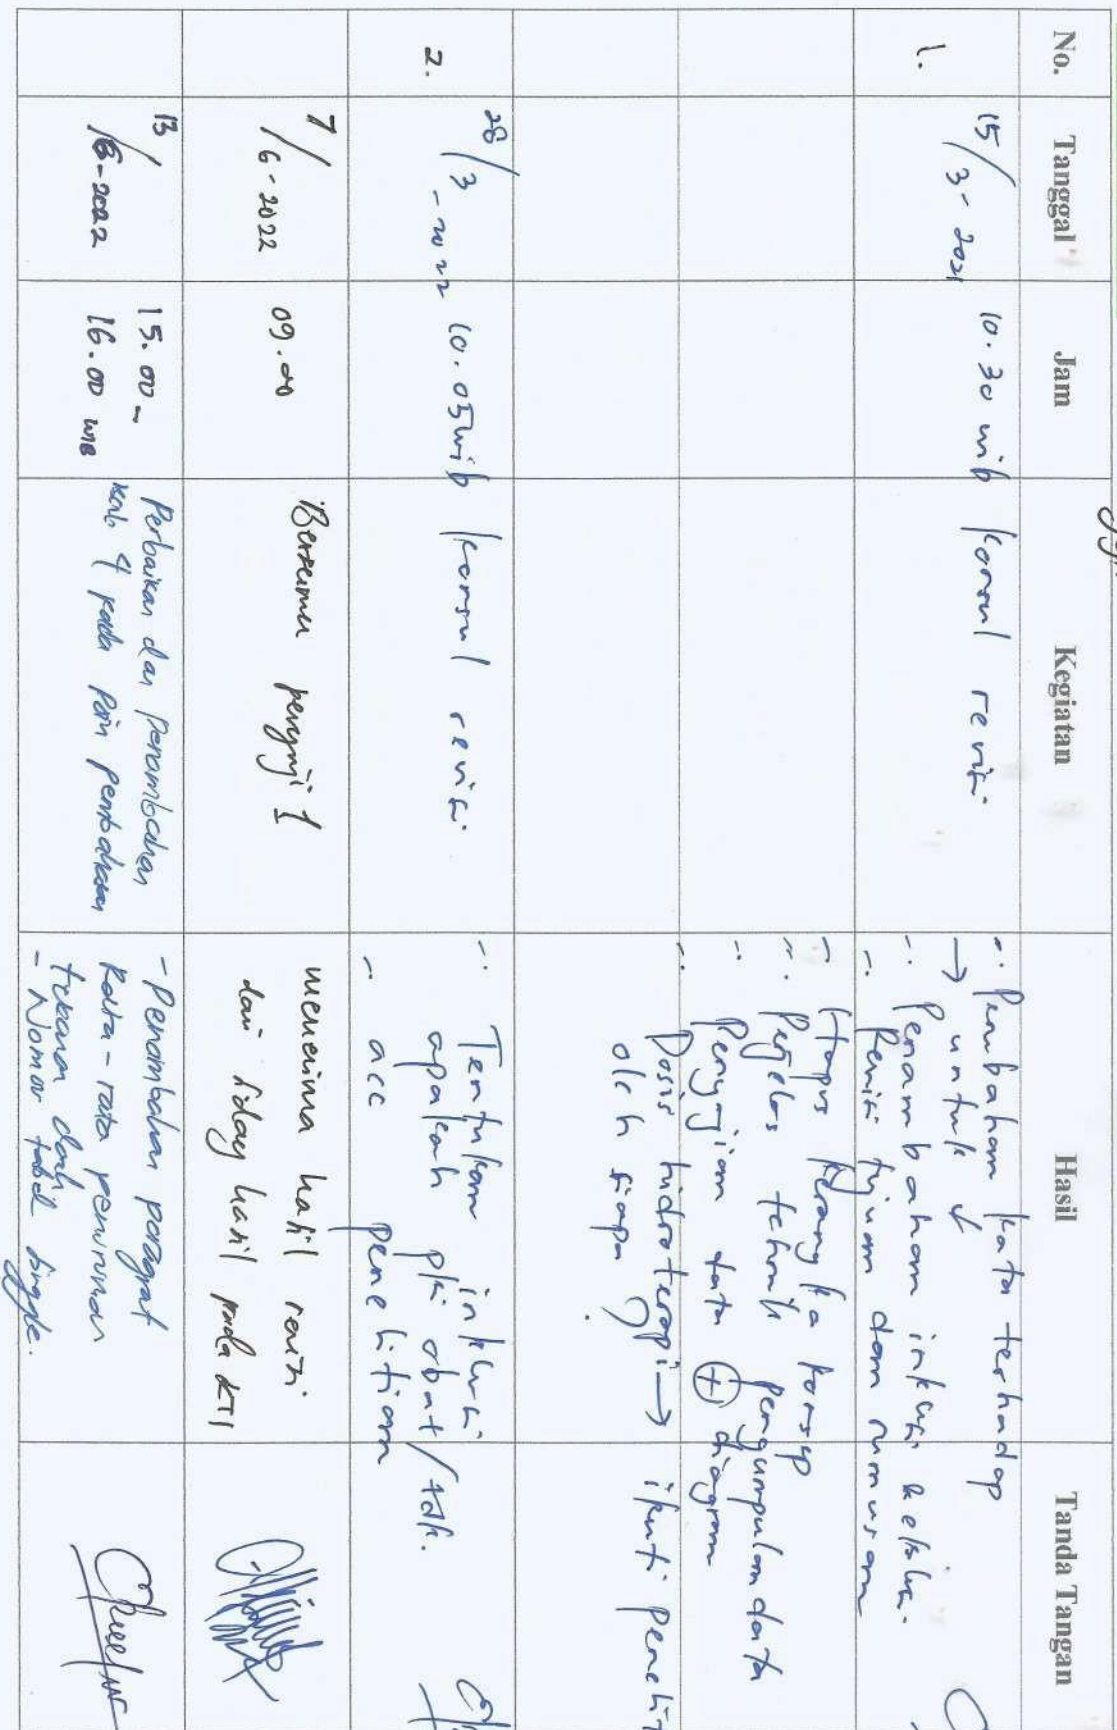 No. Tanggal Jam Kegiatan Hasil Tanda Tangan
1. 15/3-2021 10.30 wib konsul revisi
-. Perubahan kata terhadap
→ untuk
-. Penambahan inklusi & eksklusi.
-. Revisi tujuan dan rumusan
-. Hapus kerangka konsep
-. Perjelas tehnik pengumpulan data
-. Penyajian data + diagram
-. Dosis hidroterapi → ikuti peneliti
oleh siapa
2. 28/3-2022 10.05 wib konsul revisi
-. Tentukan inklusi
apakah pki obat/tdk.
-. acc penelitian
7/6-2022 09.00 Bertemu penguji 1
menerima hasil revisi
dari sidang hasil pada KTI
13/6-2022 15.00 -
16.00 WIB
Perbaikan dan Penambahan
4 pada Poin Pembahasan
- Penambahan paragraf
Rata-rata penurunan
tekanan darah
- Nomor tabel